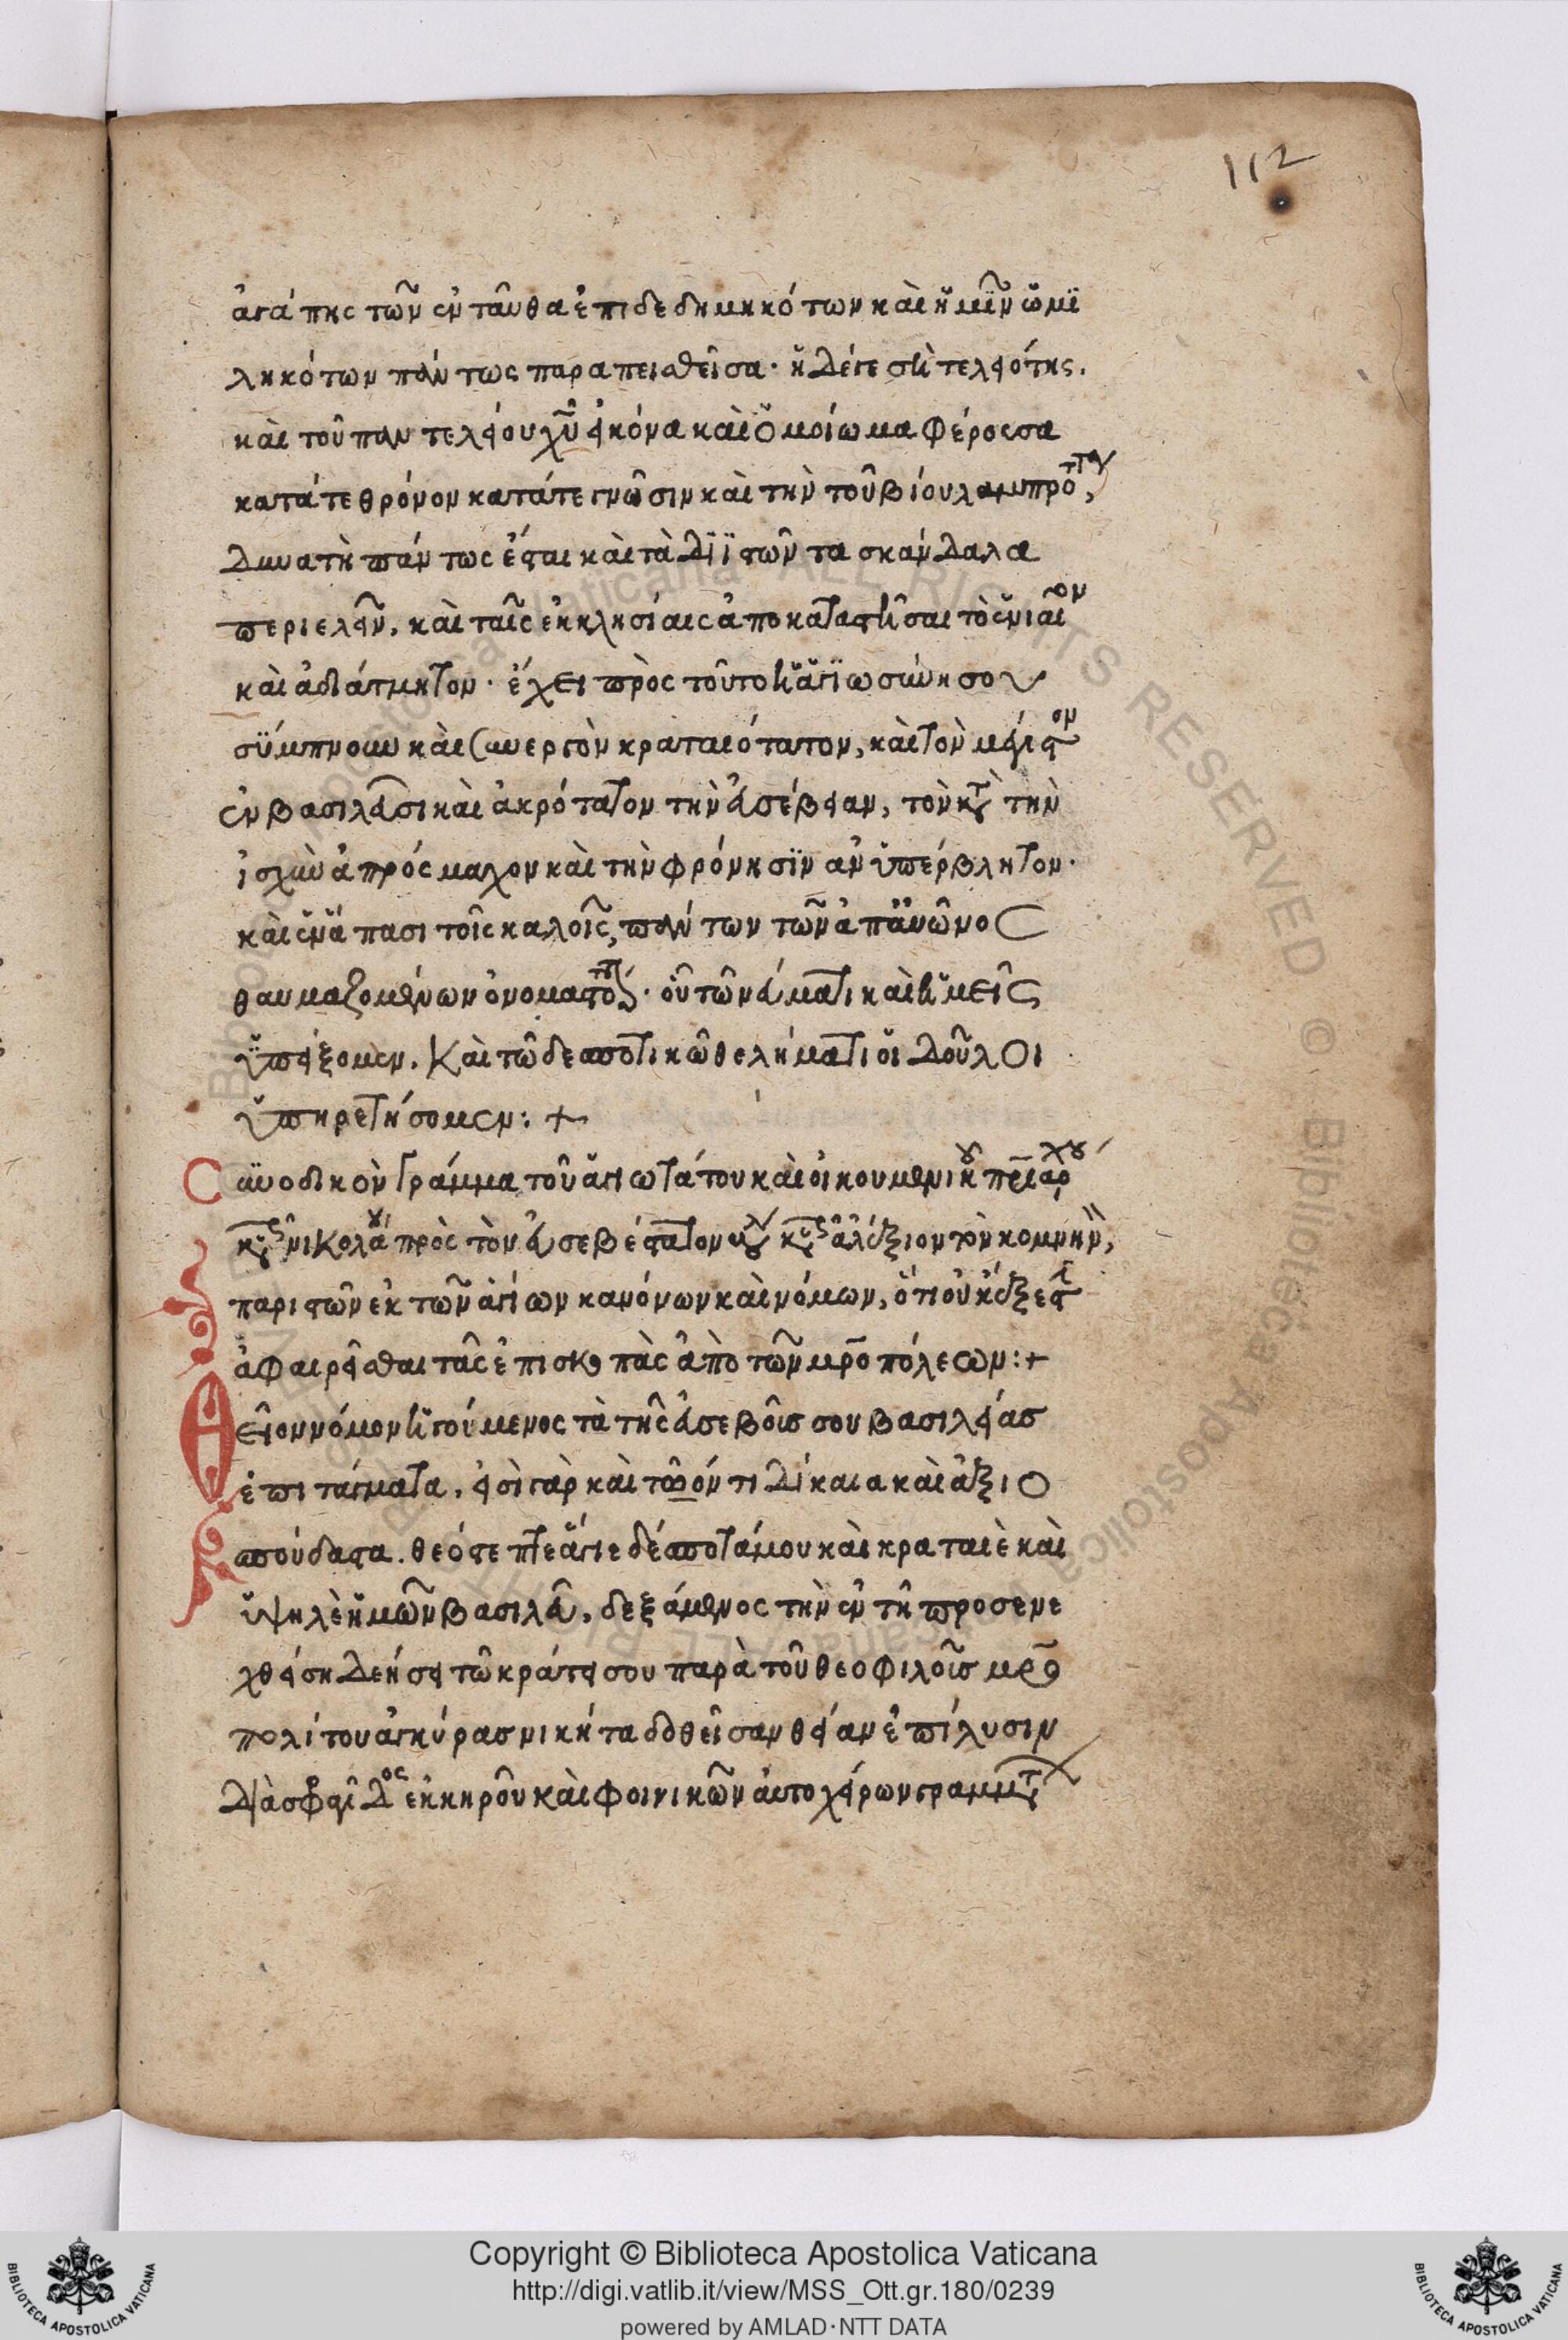 112
ἀγάπης τῶν ἐνταῦθα ἐπιδεδημηκότων καὶ ἡμῖν ὡμι
ληκότων πάντως παραπεισθεῖσα· ἡ δέ γε σὴ τελειότης.
καὶ τοῦ παντελείου χυ εἰκόνα καὶ ὁμοίωμα φέρουσα
κατά τε θρόνον κατά τε γνῶσιν καὶ τὴν τοῦ βίου λαμπρότητα,
δυνατὴ πάντως ἔσται καὶ τὰ διϊστῶντα σκάνδαλα
περιελεῖν, καὶ ταῖς ἐκκλησίαις ἀποκαταστῆσαι τὸ ἑνιαῖον
καὶ ἀδιάτμητον· ἔχει πρὸς τοῦτο ἡ ἁγιωσύνη σου
σύμπνουν καὶ συνεργὸν κραταιότατον, καὶ τὸν μέγιστον
ἐν βασιλεῦσι καὶ ἀκρότατον τὴν εὐσέβειαν, τὸν κατὰ τὴν
ἰσχὺν ἀπρόσμαχον καὶ τὴν φρόνησιν ἀνυπέρβλητον·
καὶ ἐν ἅπασι τοῖς καλοῖς, πάντων τῶν ἀπ' αἰῶνος
θαυμαζομένων ὀνομαστότερον· οὗ τῷ νεύματι καὶ ἡμεῖς
ὑπείξομεν. Καὶ τῷ δεσποτικῷ θελήματι οἱ δοῦλοι
ὑπηρετήσομεν: +
Συνοδικὸν γράμμα τοῦ ἁγιωτάτου καὶ οἰκουμενικοῦ πριάρχου
κυροῦ νικολάου πρὸς τὸν εὐσεβέστατον βασιλέα κυρὸν ἀλέξιον τὸν κομνηνόν,
παριστῶν ἐκ τῶν ἁγίων κανόνων καὶ νόμων, ὅτι οὐκ ἔξεστιν
ἀφαιρεῖσθαι τὰς ἐπισκοπὰς ἀπὸ τῶν μροπόλεων: +
Θεῖον νόμον ἡγούμενος τὰ τῆς εὐσεβοῦς σου βασιλείας
ἐπιτάγματα, εἰσὶ γὰρ καὶ τῷ ὄντι δίκαια καὶ ἀξιο
σπούδαστα. θεόστεπτε ἅγιε δέσποτά μου καὶ κραταιὲ καὶ
ὑψηλὲ ἡμῶν βασιλεῦ, δεξάμενος τὴν ἐν τῇ προσενε
χθείσῃ δεήσει τῷ κράτει σου παρὰ τοῦ θεοφιλοῦς μρο
πολίτου ἀγκύρας νικήτα δοθεῖσαν θείαν ἐπίλυσιν
διὰ σφραγῖδος ἐκ κηροῦ καὶ φοινικῶν αὐτοχείρων γραμμάτων
Copyright © Biblioteca Apostolica Vaticana
http://digi.vatlib.it/view/MSS_Ott.gr.180/0239
powered by AMLAD·NTT DATA